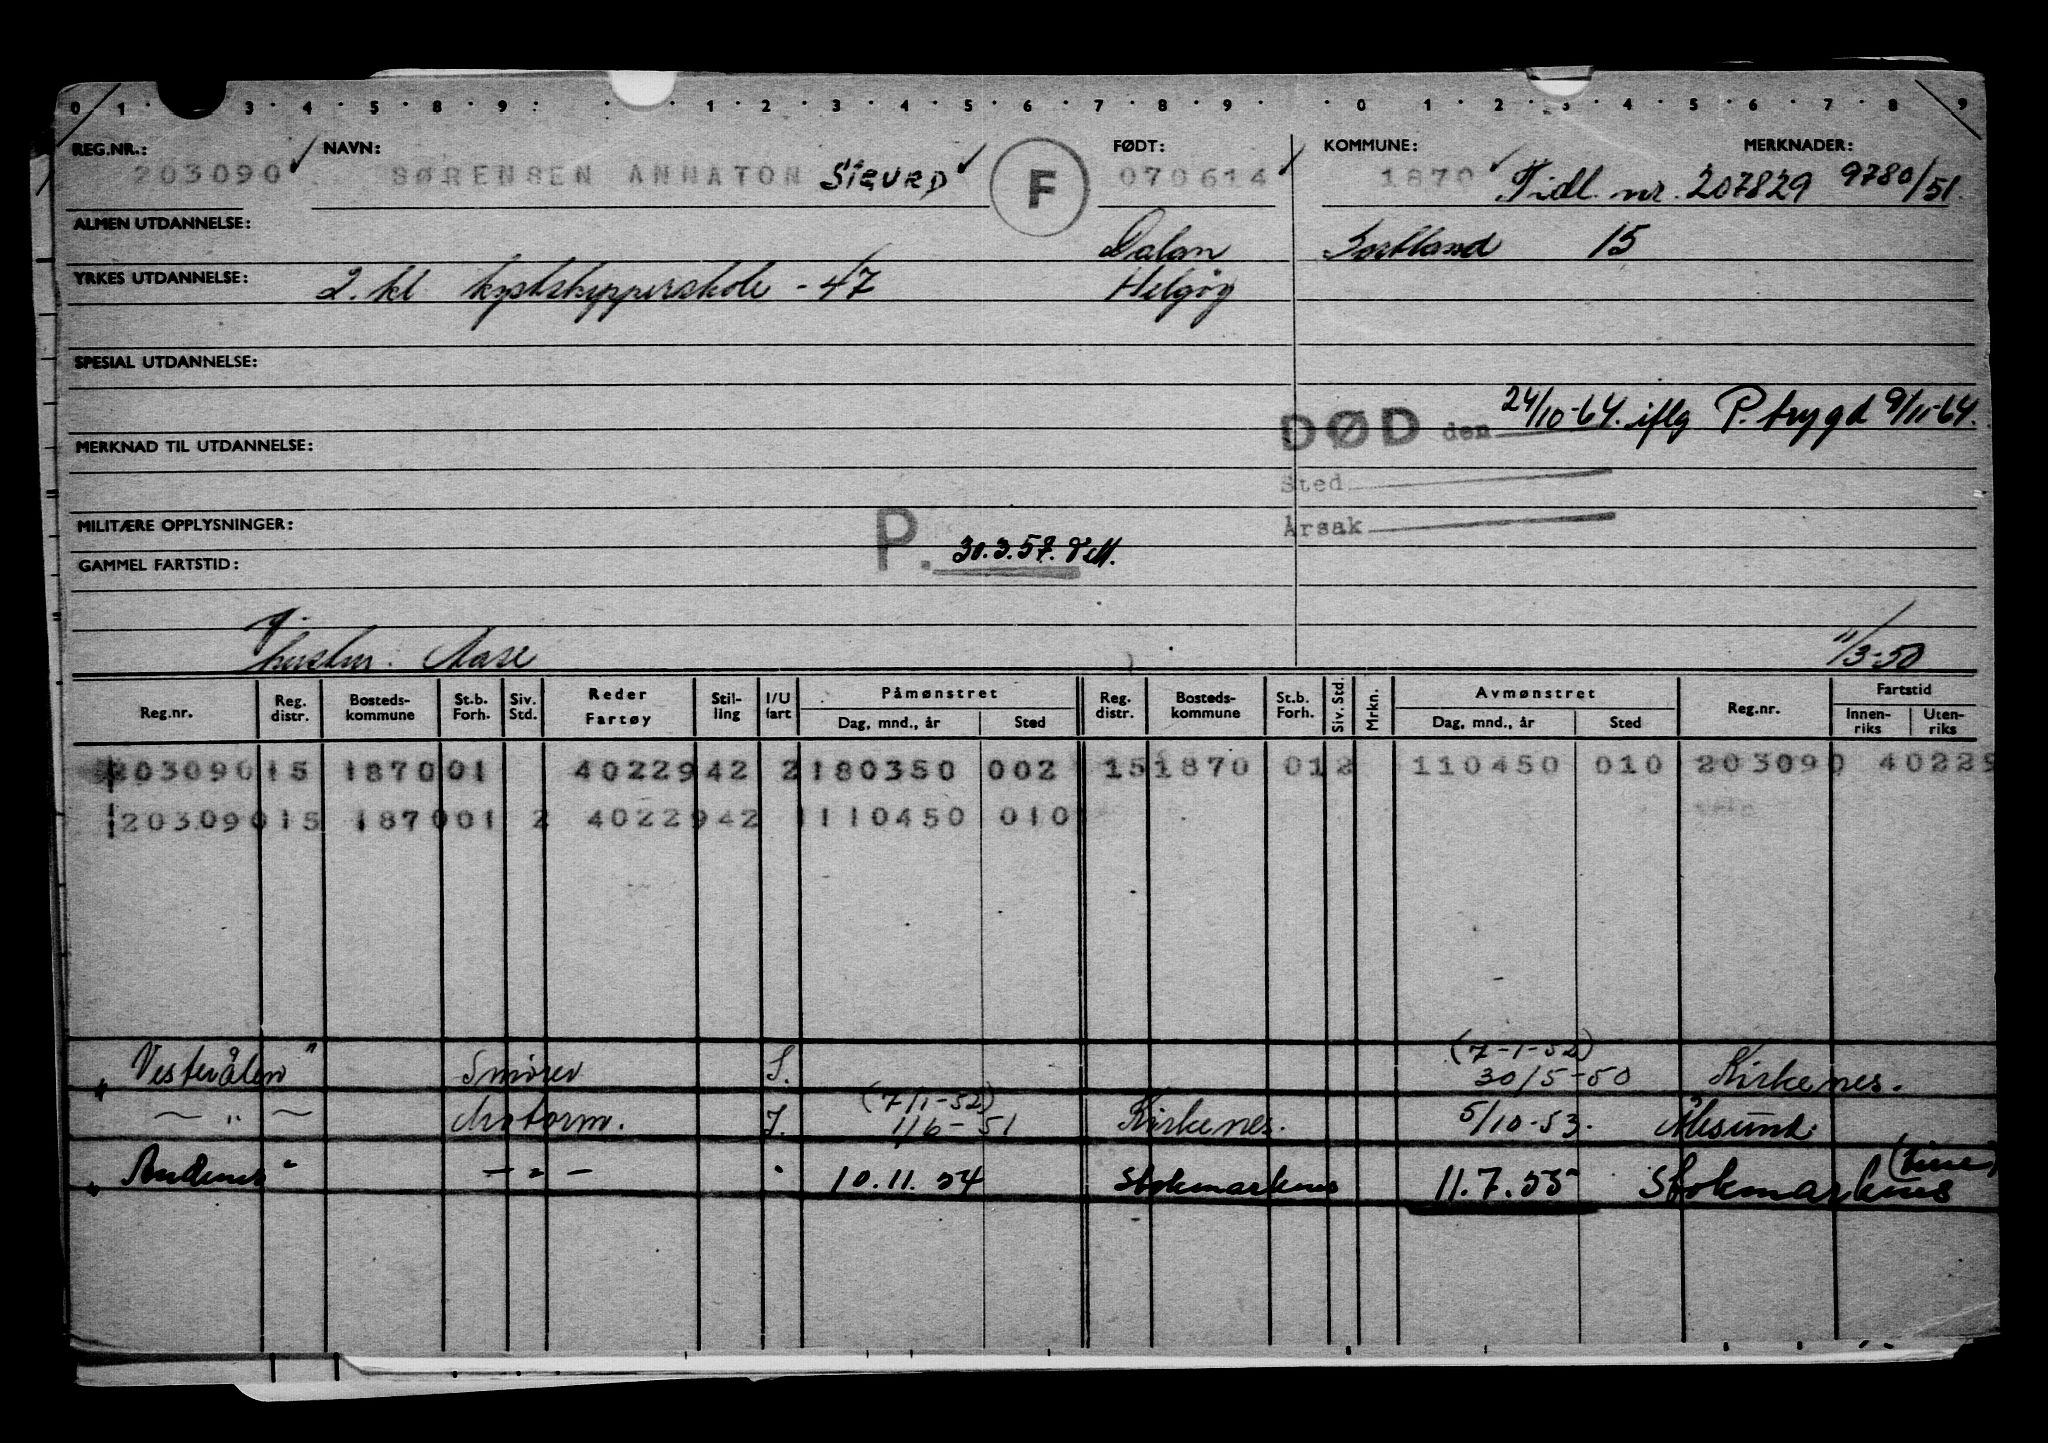 0 1 · 3 · 4 · 5 · 8 · 9 : · · 1 · 2 · 3 · 4 · 5 · 6 · 7 · 8 · 9 · · 0 · 1 · 2 · 3 · 4 · 5 · 6 · 7 · 8 · 9
REG.NR.: NAVN: FØDT: KOMMUNE: MERKNADER:
203090 SØRENSEN ANNATON SIGURD F 070614 1870 Tidl. nr. 207829 9780/51.
ALMEN UTDANNELSE: Dalan Sortland 15
YRKES UTDANNELSE: 2. kl kystskipperskole - 47 Helgøy
SPESIAL UTDANNELSE:
DØD den 24/10-64. iflg P. trygd 9/11-64.
MERKNAD TIL UTDANNELSE:
Sted
MILITÆRE OPPLYSNINGER: Årsak
GAMMEL FARTSTID: P. 30.3.57.
hustru: Aase 11/3-50
Reg.nr. Reg. distr. Bosteds-kommune St.b. Forh. Siv. Std. Reder Fartøy Stil-ling I/U fart Påmønstret Dag, mnd., år Sted Reg. distr. Bosteds-kommune St.b. Forh. Siv. Std. Mrkn. Avmønstret Dag, mnd., år Sted Reg.nr. Fartstid Innen-riks Uten-riks
203090 15 1870 01 402294 2 2 180350 002 15 1870 01 2 110450 010 203090 40229
203090 15 1870 01 2 402294 2 1 110450 010
(7-1-52)
"Vesterålen" Smører S. 30/5-50 Kirkenes.
(7/1-52)
— " — Motorm. I. 1/6-51 Kirkenes. 5/10-53. Ålesund.
"Andenes" — " — " 10.11.54 Stokmarknes 11.7.55 Stokmarknes